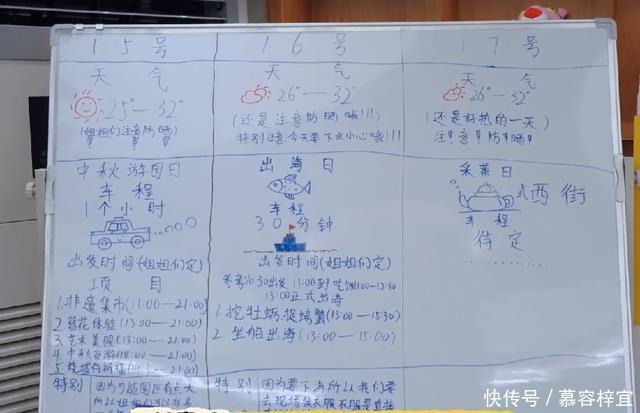 15号
天气
25°—32°
(姐姐们注意防晒)
中秋游园日
车程
1个小时
出发时间(姐姐们定)
项目
1.非遗集市(11:00—21:00)
2.簪花体验(13:00—21:00)
3.艺术美服(13:00—21:00)
4.中秋夜游(18:00—21:00)
5.
特别
因为可能园区有点大
所以姐姐们可以
16号
天气
26°—32°
(还是注意防晒哦!!!)
特别注意:今天要下水小心哦!!!
出海日
车程
30分钟
出发时间(姐姐们定)
参考10:30出发 11:00到 吃饭11:00-12:30
13:00正式出海
1.挖牡蛎,捉螃蟹(13:00—15:30)
2.坐船出海(13:00—15:00)
特别
因为要下海所以我们要
去现场换衣服不服要直接
17号
天气
26°—32°
(还是好热的一天)
注!意!防!晒!
采茶日
西街
车程
待定
快传号/慕容梓宜